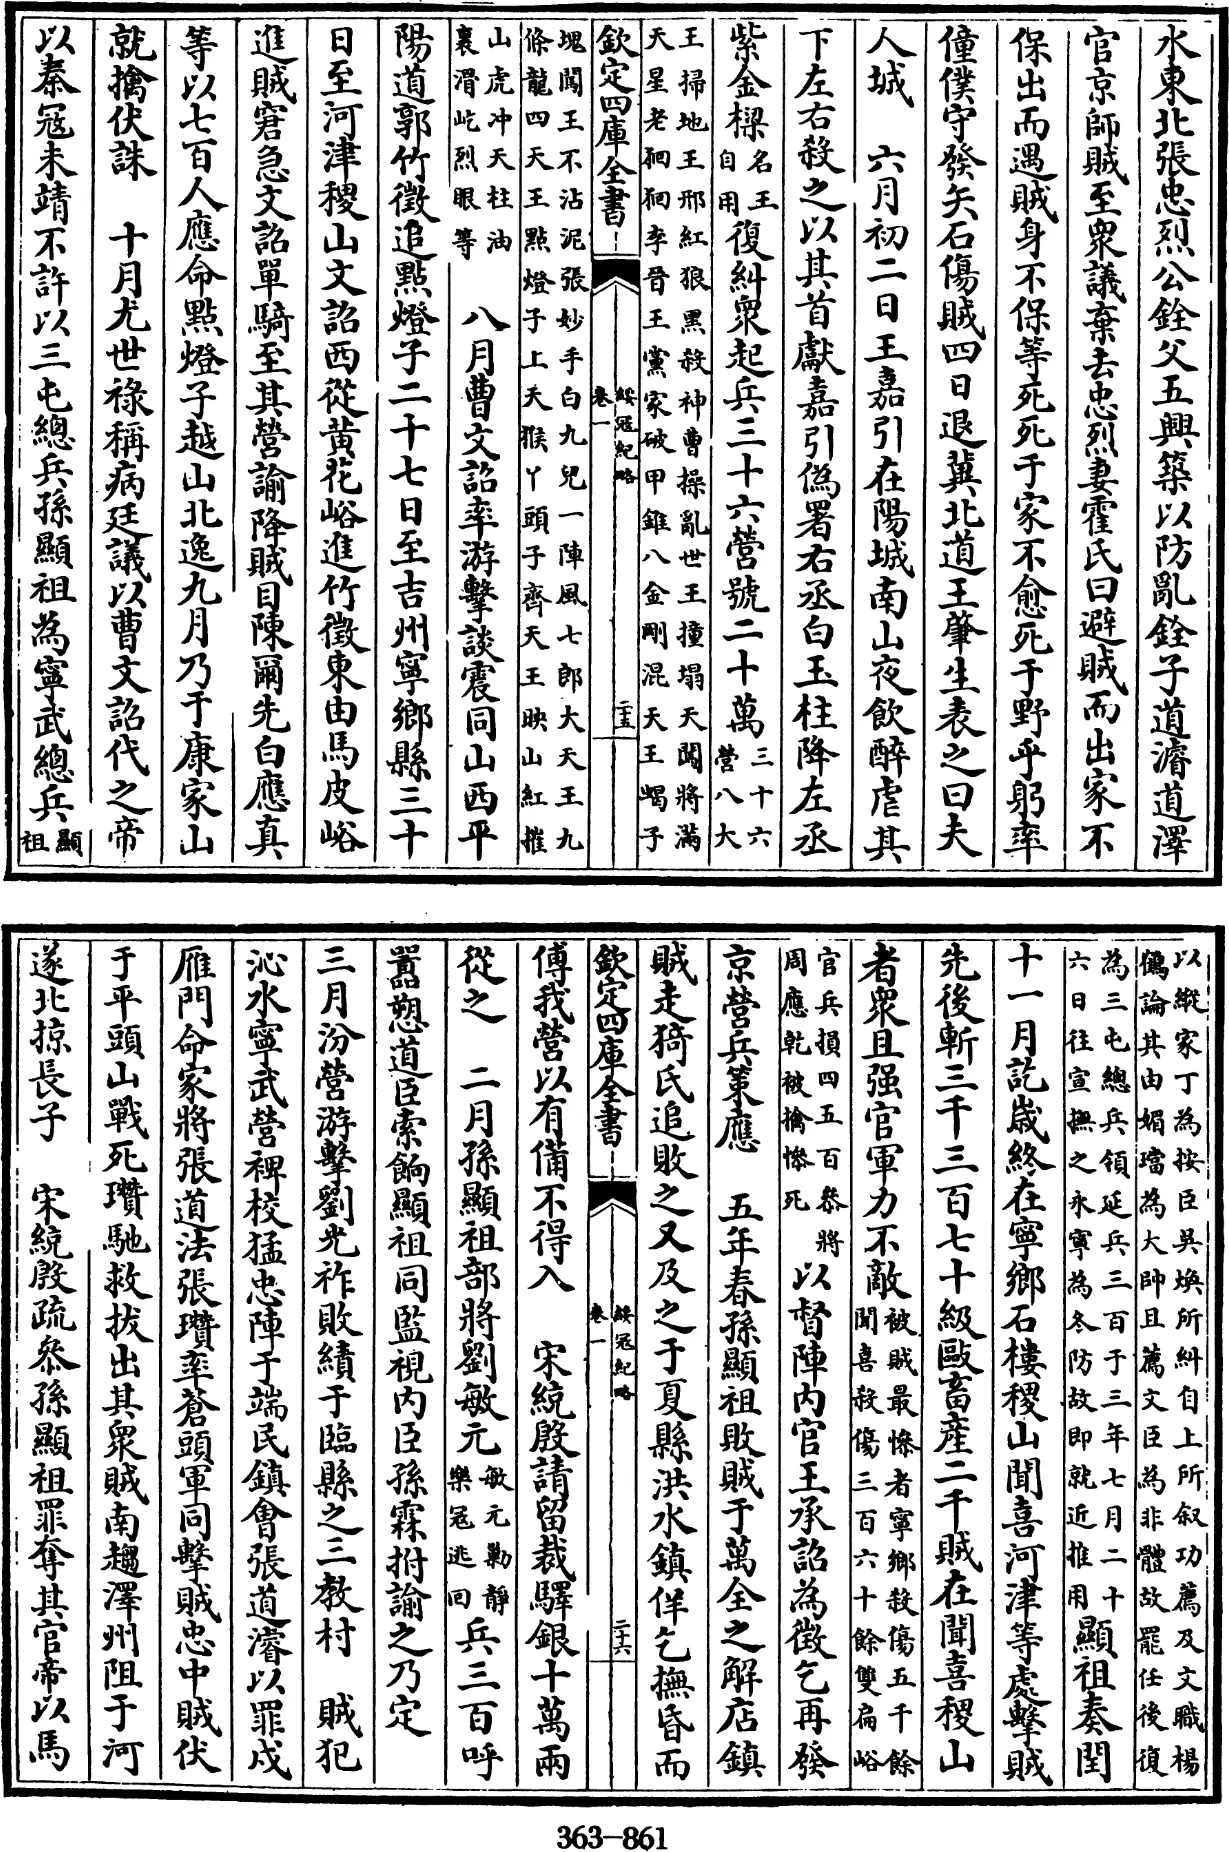 水東北張忠烈公銓父五興築以防亂銓子道濬道澤
官京師賊至衆議棄去忠烈妻霍氏曰避賊而出家不
保出而遇賊身不保等死死于家不愈死于野乎躬率
僮僕守發矢石傷賊四日退冀北道王肇生表之曰夫
人城　六月初二日王嘉引在陽城南山夜飲醉虐其
下左右殺之以其首獻嘉引僞署右丞白玉柱降左丞
紫金樑名王自用復糾衆起兵三十六營號二十萬三十六營八大
王掃地王邢紅狼黑殺神曹操亂世王撞塌天闖將滿
天星老𤞑𤞑李晉王黨家破甲錐八金剛混天王蝎子
欽定四庫全書　綏寇紀略卷一　二十五
塊闖王不沾泥張妙手白九兒一陣風七郎大天王九
條龍四天王點燈子上天猴丫頭子齊天王映山紅摧
山虎冲天柱油裏滑屹烈眼等　八月曹文詔率游擊談震同山西平
陽道郭竹徵追點燈子二十七日至吉州寧鄉縣三十
日至河津稷山文詔西從黄花峪進竹徵東由馬皮峪
進賊窘急文詔單騎至其營諭降賊目陳爾先白應真
等以七百人應命點燈子越山北逸九月乃于康家山
就擒伏誅　十月尤世祿稱病廷議以曹文詔代之帝
以秦寇未靖不許以三屯總兵孫顯祖為寧武總兵顯祖
以縱家丁為按臣吳煥所糾自上所叙功薦及文職楊
鶴論其由媚璫為大帥且薦文臣為非體故罷任後復
為三屯總兵領延兵三百于三年七月二十
六日往宣撫之永寧為冬防故即就近推用顯祖奏閏
十一月訖嵗終在寧鄉石樓稷山聞喜河津等處擊賊
先後斬三千三百七十級敺畜産二千賊在聞喜稷山
者衆且强官軍力不敵被賊最慘者寧鄉殺傷五千餘聞喜殺傷三百六十餘雙扁峪
官兵損四五百叅將周應乾被擒慘死　以督陣内官王承詔為徵乞再發
京營兵策應　五年春孫顯祖敗賊于萬全之解店鎮
賊走猗氏追敗之又及之于夏縣洪水鎮佯乞撫昏而
欽定四庫全書　綏寇紀略卷一　二十六
傅我營以有備不得入　宋統殷請留裁驛銀十萬兩
從之　二月孫顯祖部將劉敏元敏元勦靜樂寇逃回兵三百呼
嚻愬道臣索餉顯祖同監視内臣孫霖拊諭之乃定
三月汾營游擊劉光祚敗績于臨縣之三教村　賊犯
沁水寧武營裨校猛忠陣于端民鎮會張道濬以罪戍
雁門命家將張道法張瓚率蒼頭軍同擊賊忠中賊伏
于平頭山戰死瓚馳救拔出其衆賊南趨澤州阻于河
遂北掠長子　宋統殷疏叅孫顯祖罪奪其官帝以馬
363-861